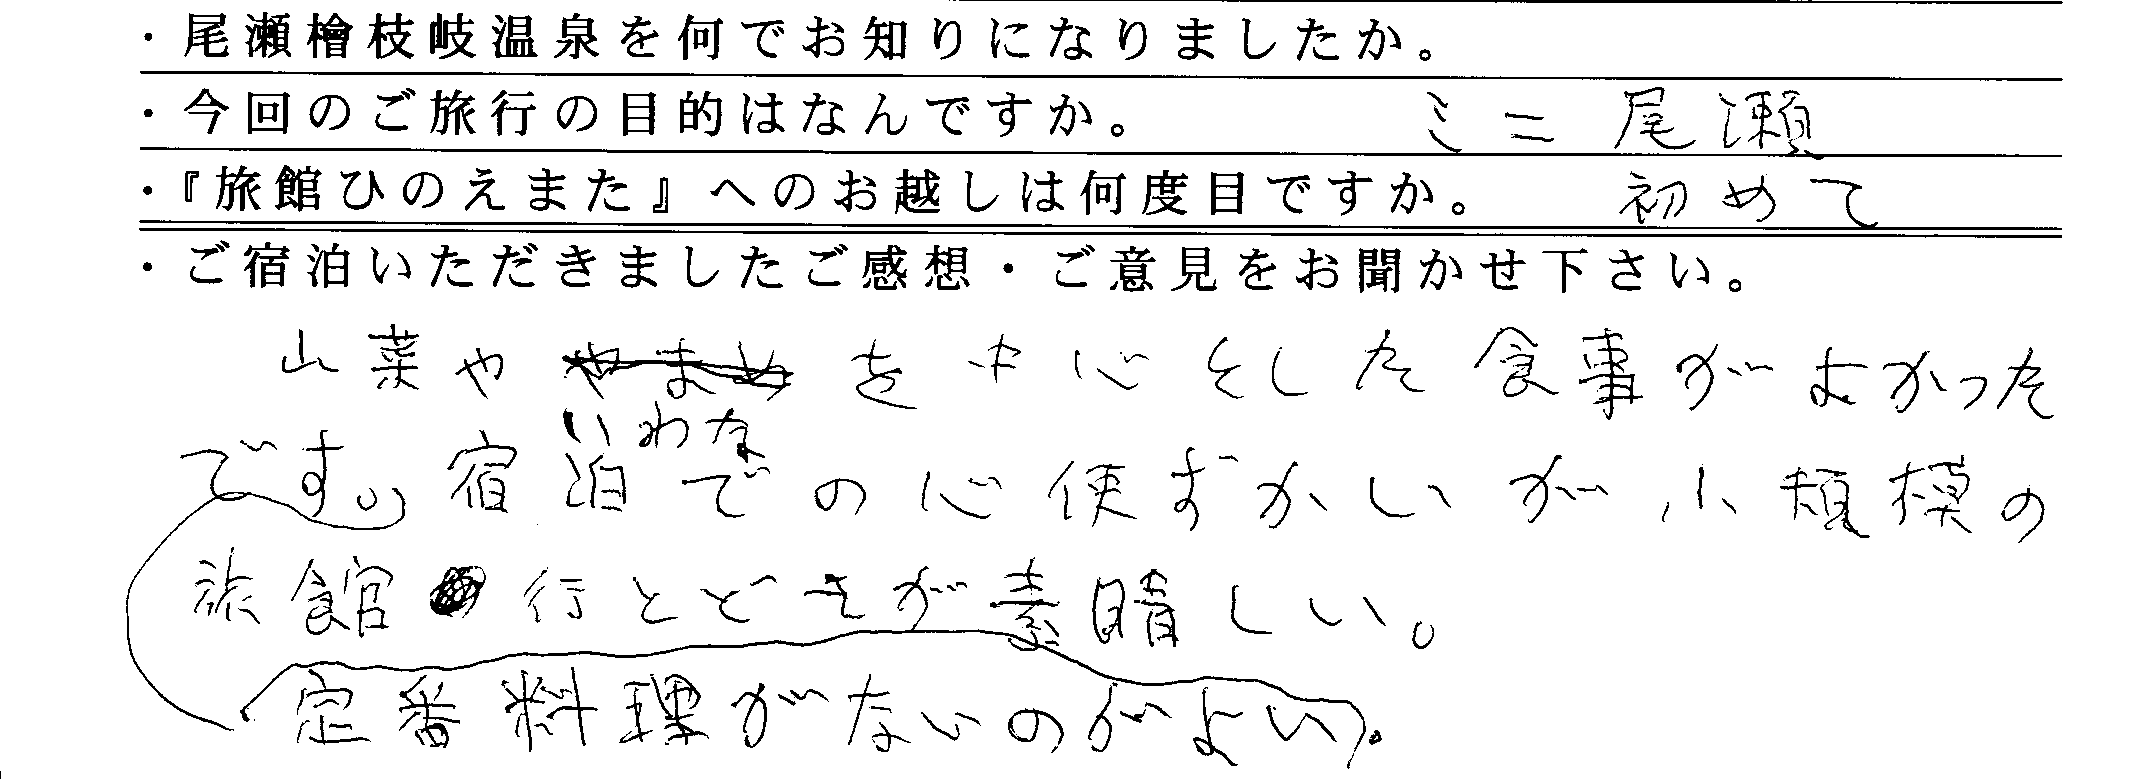 ・尾瀬檜枝岐温泉を何でお知りになりましたか。
・今回のご旅行の目的はなんですか。 ミニ尾瀬
・『旅館ひのえまた』へのお越しは何度目ですか。 初めて
・ご宿泊いただきましたご感想・ご意見をお聞かせ下さい。
山菜ややまめを中心とした食事がよかった
いわな
です。宿泊での心使ずかいが小規模の
旅館行とどきが素晴しい。
定番料理がないのがよい。